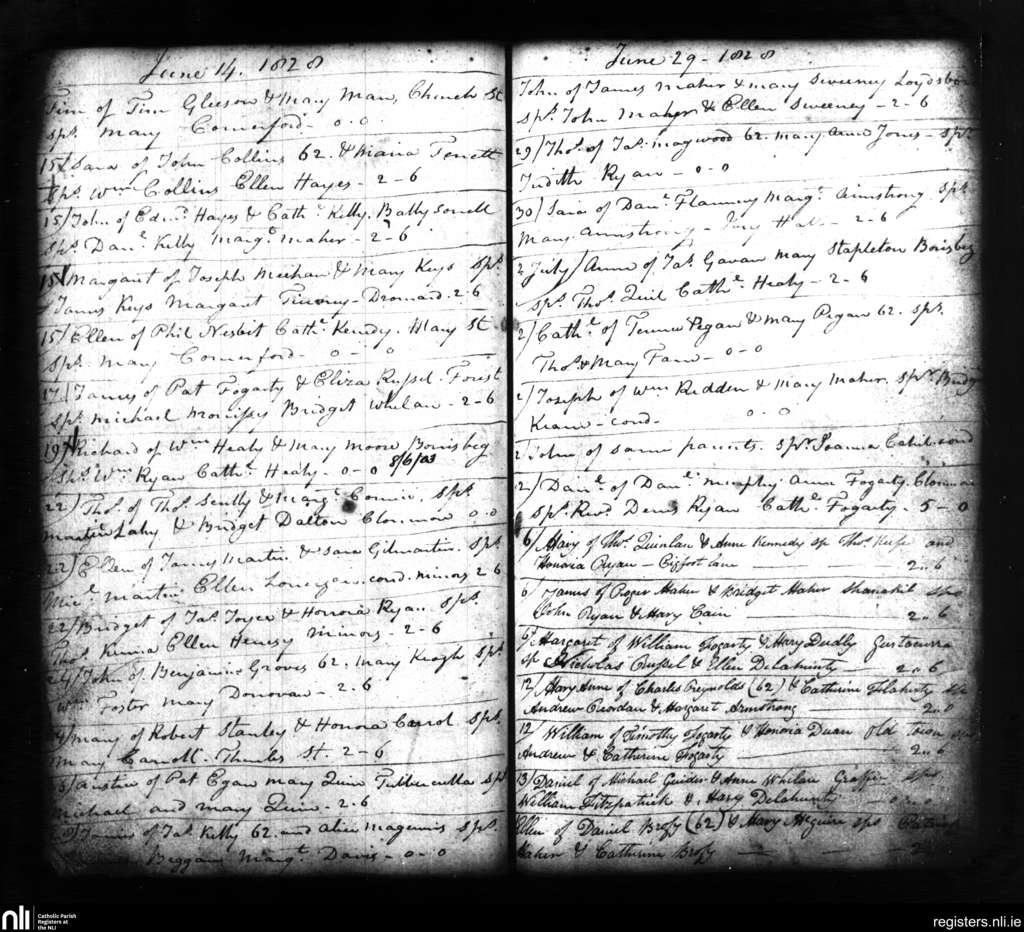 June 14. 1828
Tim of Tim Gleeson & Mary Man, Church St
sps. Mary Comerford - 0 - 0
15/ Sara of John Collins 62. & Maria
sps. Wm Collins Ellen Hayes - 2 - 6
15/ John of Edmd. Hayes & Cathe. Kelly. Ballysorrell
sps. Danl. Kelly Margt. Maher - 2 - 6
15/ Margaret of Joseph Meehan & Mary Keys sps.
James Keys Margaret Tierney - Dromard. 2 - 6
15/ Ellen of Phil Nesbit Cathe. Kenedy. Mary St
sps. Mary Comerford - 0 - 0
17/ James of Pat Fogarty & Eliza Russel. Forest
sps. Michael Morrissy Bridget Whelan - 2 - 6
19/ Richard of Wm Healy & Mary Moore Borrisbeg
sps. Wm. Ryan Cathe. Healy - 0 - 0 8/6/03
22/ Thos. of Thos. Scully & Margt. sps.
Martin Lahy & Bridget Dalton Clonmore 0 - 0
22/ Ellen of James Martin & Sara Gilmartin. sps
Michl. Martin Ellen Lonergan. cond. minors 2 6
22/ Bridget of Jas. Joyce & Honora Ryan. sps.
Thos. Kinnia Ellen Henesy Minors - 2 - 6
24/ John of Benjamin Groves 62. Mary Keogh sps
Wm Foster Mary Donovan - 2 - 6
Mary of Robert Stanley & Honora Carrol sps.
Mary Carroll. Thurles St. 2 - 6
of Pat Egan Mary Quin sps
Michael and Mary Quin - 2 - 6
James of Jas. Kelly 62. and Alice Magennis sps.
Beggan Margt. Davis - 0 - 0
June 29 - 1828
John of James Maher & Mary Sweeney
sps. John Maher & Ellen Sweeney - 2 - 6
29/ Thos. of Jas. Maywood 62. Mary Anne Jones - sps.
Judith Ryan - 0 - 0
30/ Sara of Danl. Flannery Margt. Armstrong sps.
Mary Armstrong - 2 - 6
2 July/ Anne of Jas. Gavan Mary Stapleton Borrisbeg
sps. Thos. Quil Cathe. Healy - 2 - 6
2/ Cathe. of Pegan & Mary Pegan 62. sps.
Thos. & Mary - 0 - 0
2/ Joseph of Wm Redden & Mary Maher. sps. Bridgt
- cond - 0 - 0
2 John of same parents. sps. Joanna Cahil. cond
2/ Danl. of Danl. Murphy Anne Fogarty. Clonmore
sps. Revd Denis Ryan Cathe. Fogarty - 5 - 0
6/ Mary of Thos. Quinlan & Anne Kennedy sp Thos. Keefe and
Honora Ryan - Pigfoot lane 2 " 6
6/ James of Roger Maher & Bridget Maher Shanakil sps
John Ryan & Mary Cain 2 " 6
6/ Margaret of William Fogarty & Mary Dudly
sp Nicholas Russel & Ellen Delahunty 2 " 6
12/ Mary Anne of Charles Reynolds (62) & Catherine Flaherty sps
Andrew Reordan & Margaret Armstrong 2 " 0
12/ William of Timothy Fogarty & Honora Duan Old town sps
Andrew & Catherine Fogarty 2 " 6
13/ Daniel of Michael Guider & Anne Whelan Graffin sps
William Fitzpatrick & Mary Delahunty
Ellen of Daniel Brofy (62) & Mary McGuire sps Patrick
Maher & Catherine Brofy
nli
Catholic Parish
Registers at
the NLI
registers.nli.ie